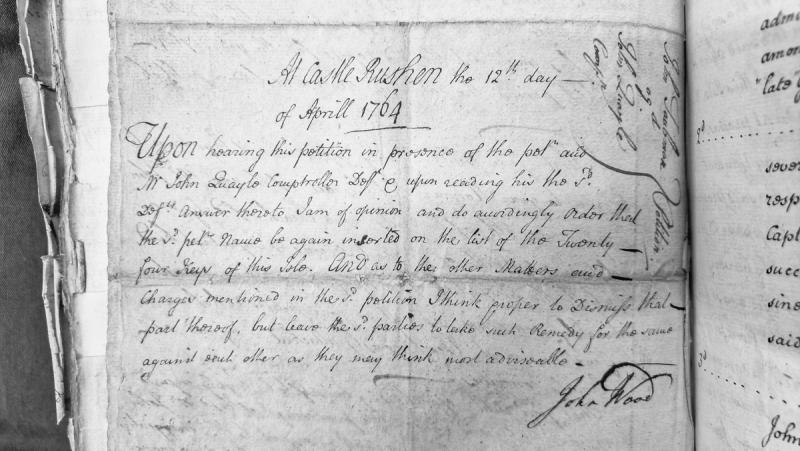 At Castle Rushen the 12th day
of Aprill 1764
Upon hearing this petition in presence of the petr and
Mr John Quayle Comptroller Deft & upon reading his the sd
Defts Answer thereto, I am of opinion and do accordingly Order that
the sd petrs Name be again inserted on the list of the Twenty
four Keys of this Isle. And as to the other Matters and
Charges mentioned in the sd petition I think proper to Dismiss that
part thereof, but leave the sd parties to take such Remedy for the same
against each other as they may think most adviseable
John Wood
John
agt
John Quayle
Compr
Petition
adm
amon
"late
2d
sever
resp
Capt
succ
sinc
said
3d
John